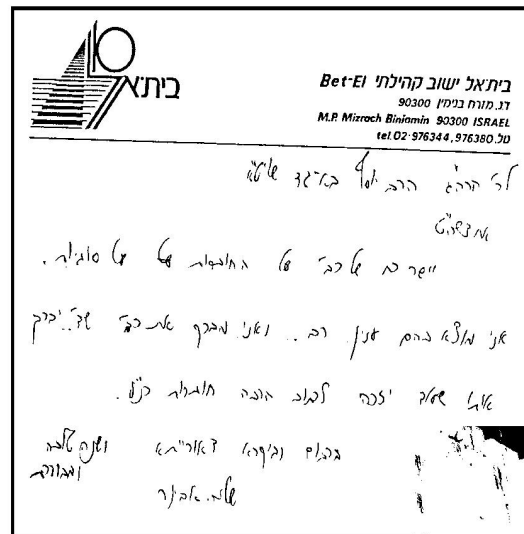 בית־אל
בית־אל ישוב קהילתי Bet-El
דנ. מזרח בנימין 90300
M.P. Mizrach Biniamin 90300 ISRAEL
tel.02-976344,976380.טל
הרב יוסף
יישר כח של רב' על החוברות על סוגיות.
אני מוצא בהם ענין רב.. ואני מברך את רב' שד' יברך
אותו שעוד יזכה לכתוב הרבה חוברות כנ"ל.
ברכות וביקרא דאורייתא ושנה טובה
ומבורכת
שלמה אבינר